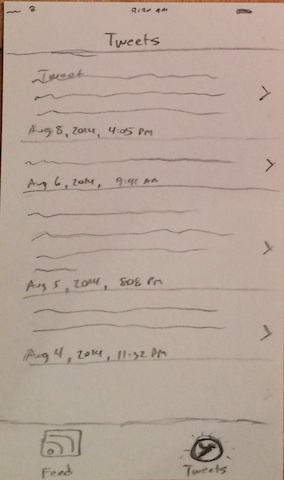 9:20 AM
Tweets
Tweet
Aug 8, 2014, 4:05 PM
Aug 6, 2014, 9:41 AM
Aug 5, 2014, 8:08 PM
Aug 4, 2014, 11:32 PM
Feed
Tweets